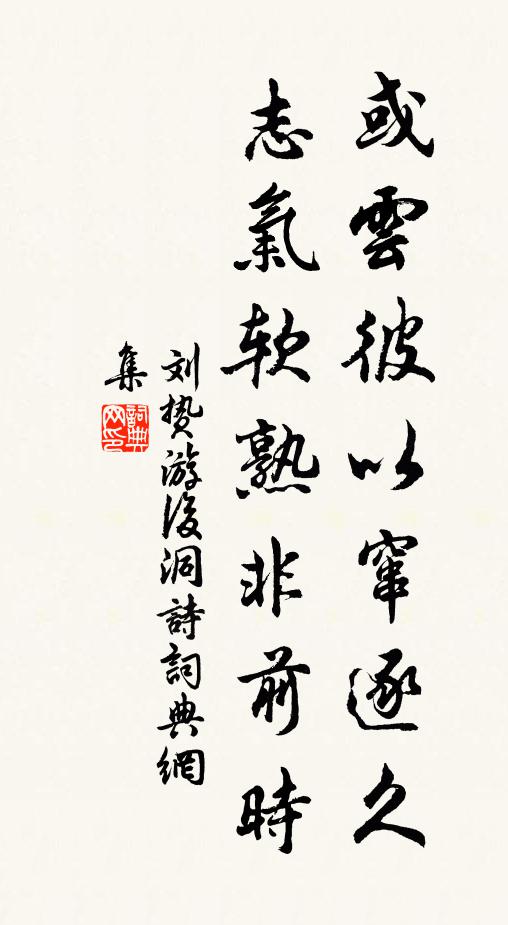 或雲彼以窜逐久
志氣软熟非前時
刘挚游後洞詩詞典網
集
詞典网印